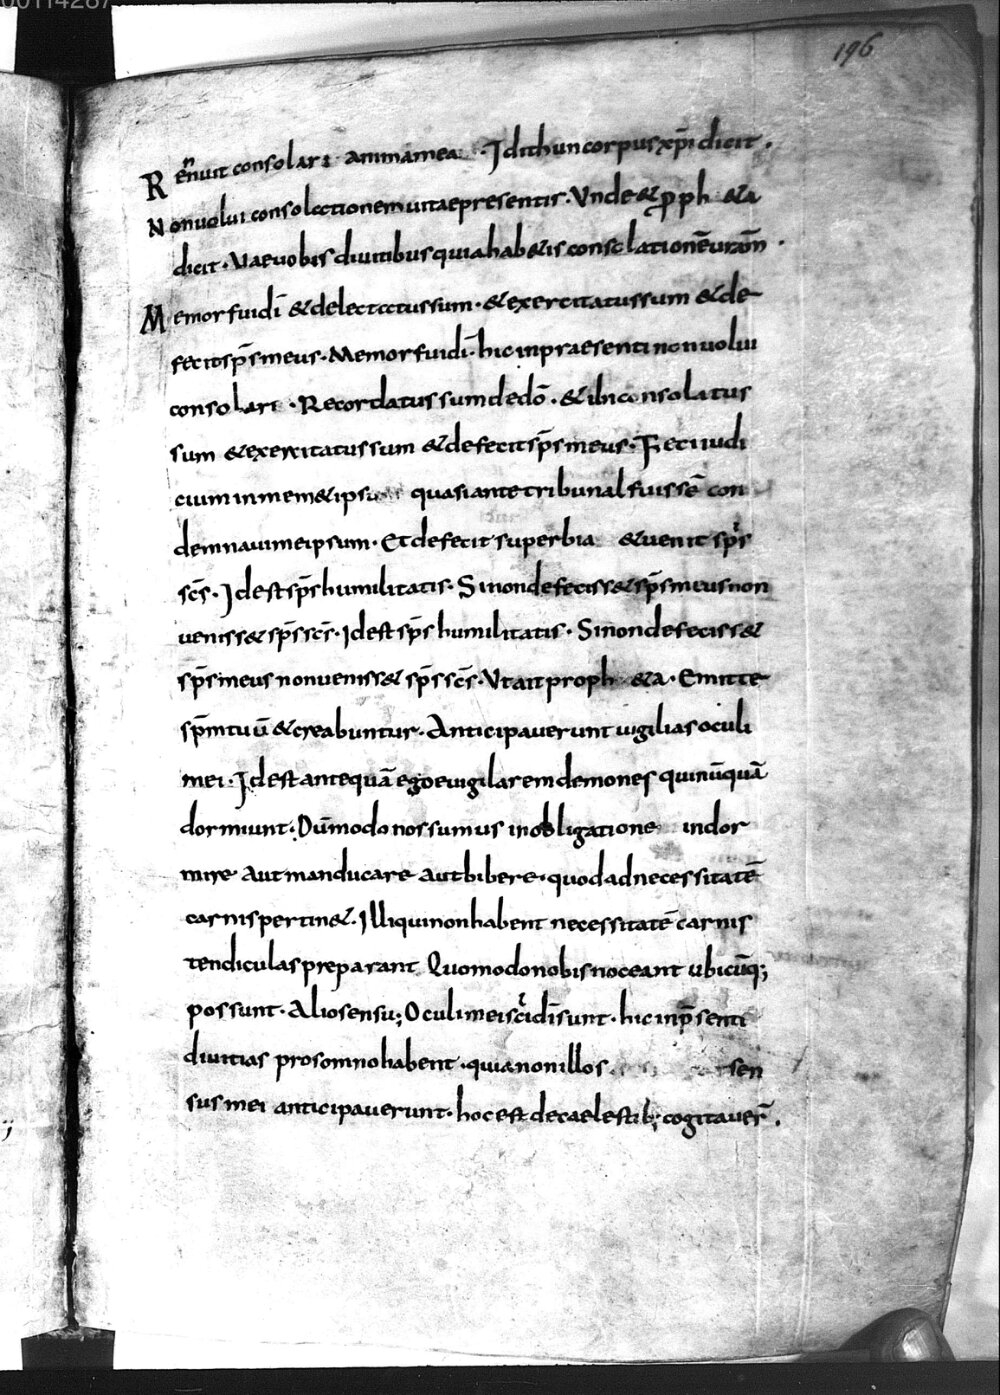 00114287
196
Renuit consolari animamea · Idithun corpus xp̄i dicit ·
Nonuolui consolationem uitaepresentis · Vnde & p̄ph &a
dicit · Uaeuobis diuitibus quia hab&is consolationē uram̄ ·
Memor fui dī & delectatus sum · & exercitatus sum & de
fecit sp̄s meus · Memor fui dī · hic inpraesenti nonuolui
consolari · Recordatus sum de dō · & ibi consolatus
sum & exercitatus sum & defecit sp̄s meus · Feci iudi
cium in mem&ipsu quasi ante tribunal fuissē con
demnaui meipsum · Et defecit superbia & uenit sp̄s
sc̄s · Idest sp̄s humilitatis · Sinon defeciss& sp̄s meus non
ueniss& sp̄s sc̄s · Idest sp̄s humilitatis · Sinon defeciss&
sp̄s meus non ueniss& sp̄s sc̄s · Vt ait proph &a · Emitte
sp̄m tuū & creabuntur · Anticipauerunt uigilias oculi
mei · Idest antequā ego euigilarem demones qui nūquā
dormiunt · Dūmodo nos sumus inobligatione indor
mire aut manducare aut bibere · quod ad necessitatē
carnis pertin& · Illi qui non habent necessitatē carnis
tendiculas preparant Quomodo nobis noceant ubicūq;
possunt · Alio sensu; Oculi mei sc̄i dī sunt · hic inp̄senti
diuitias prosomno habent · quia non illos sen
sus mei anticipauerunt · hoc est decaelestib; cogitauer̄ ·